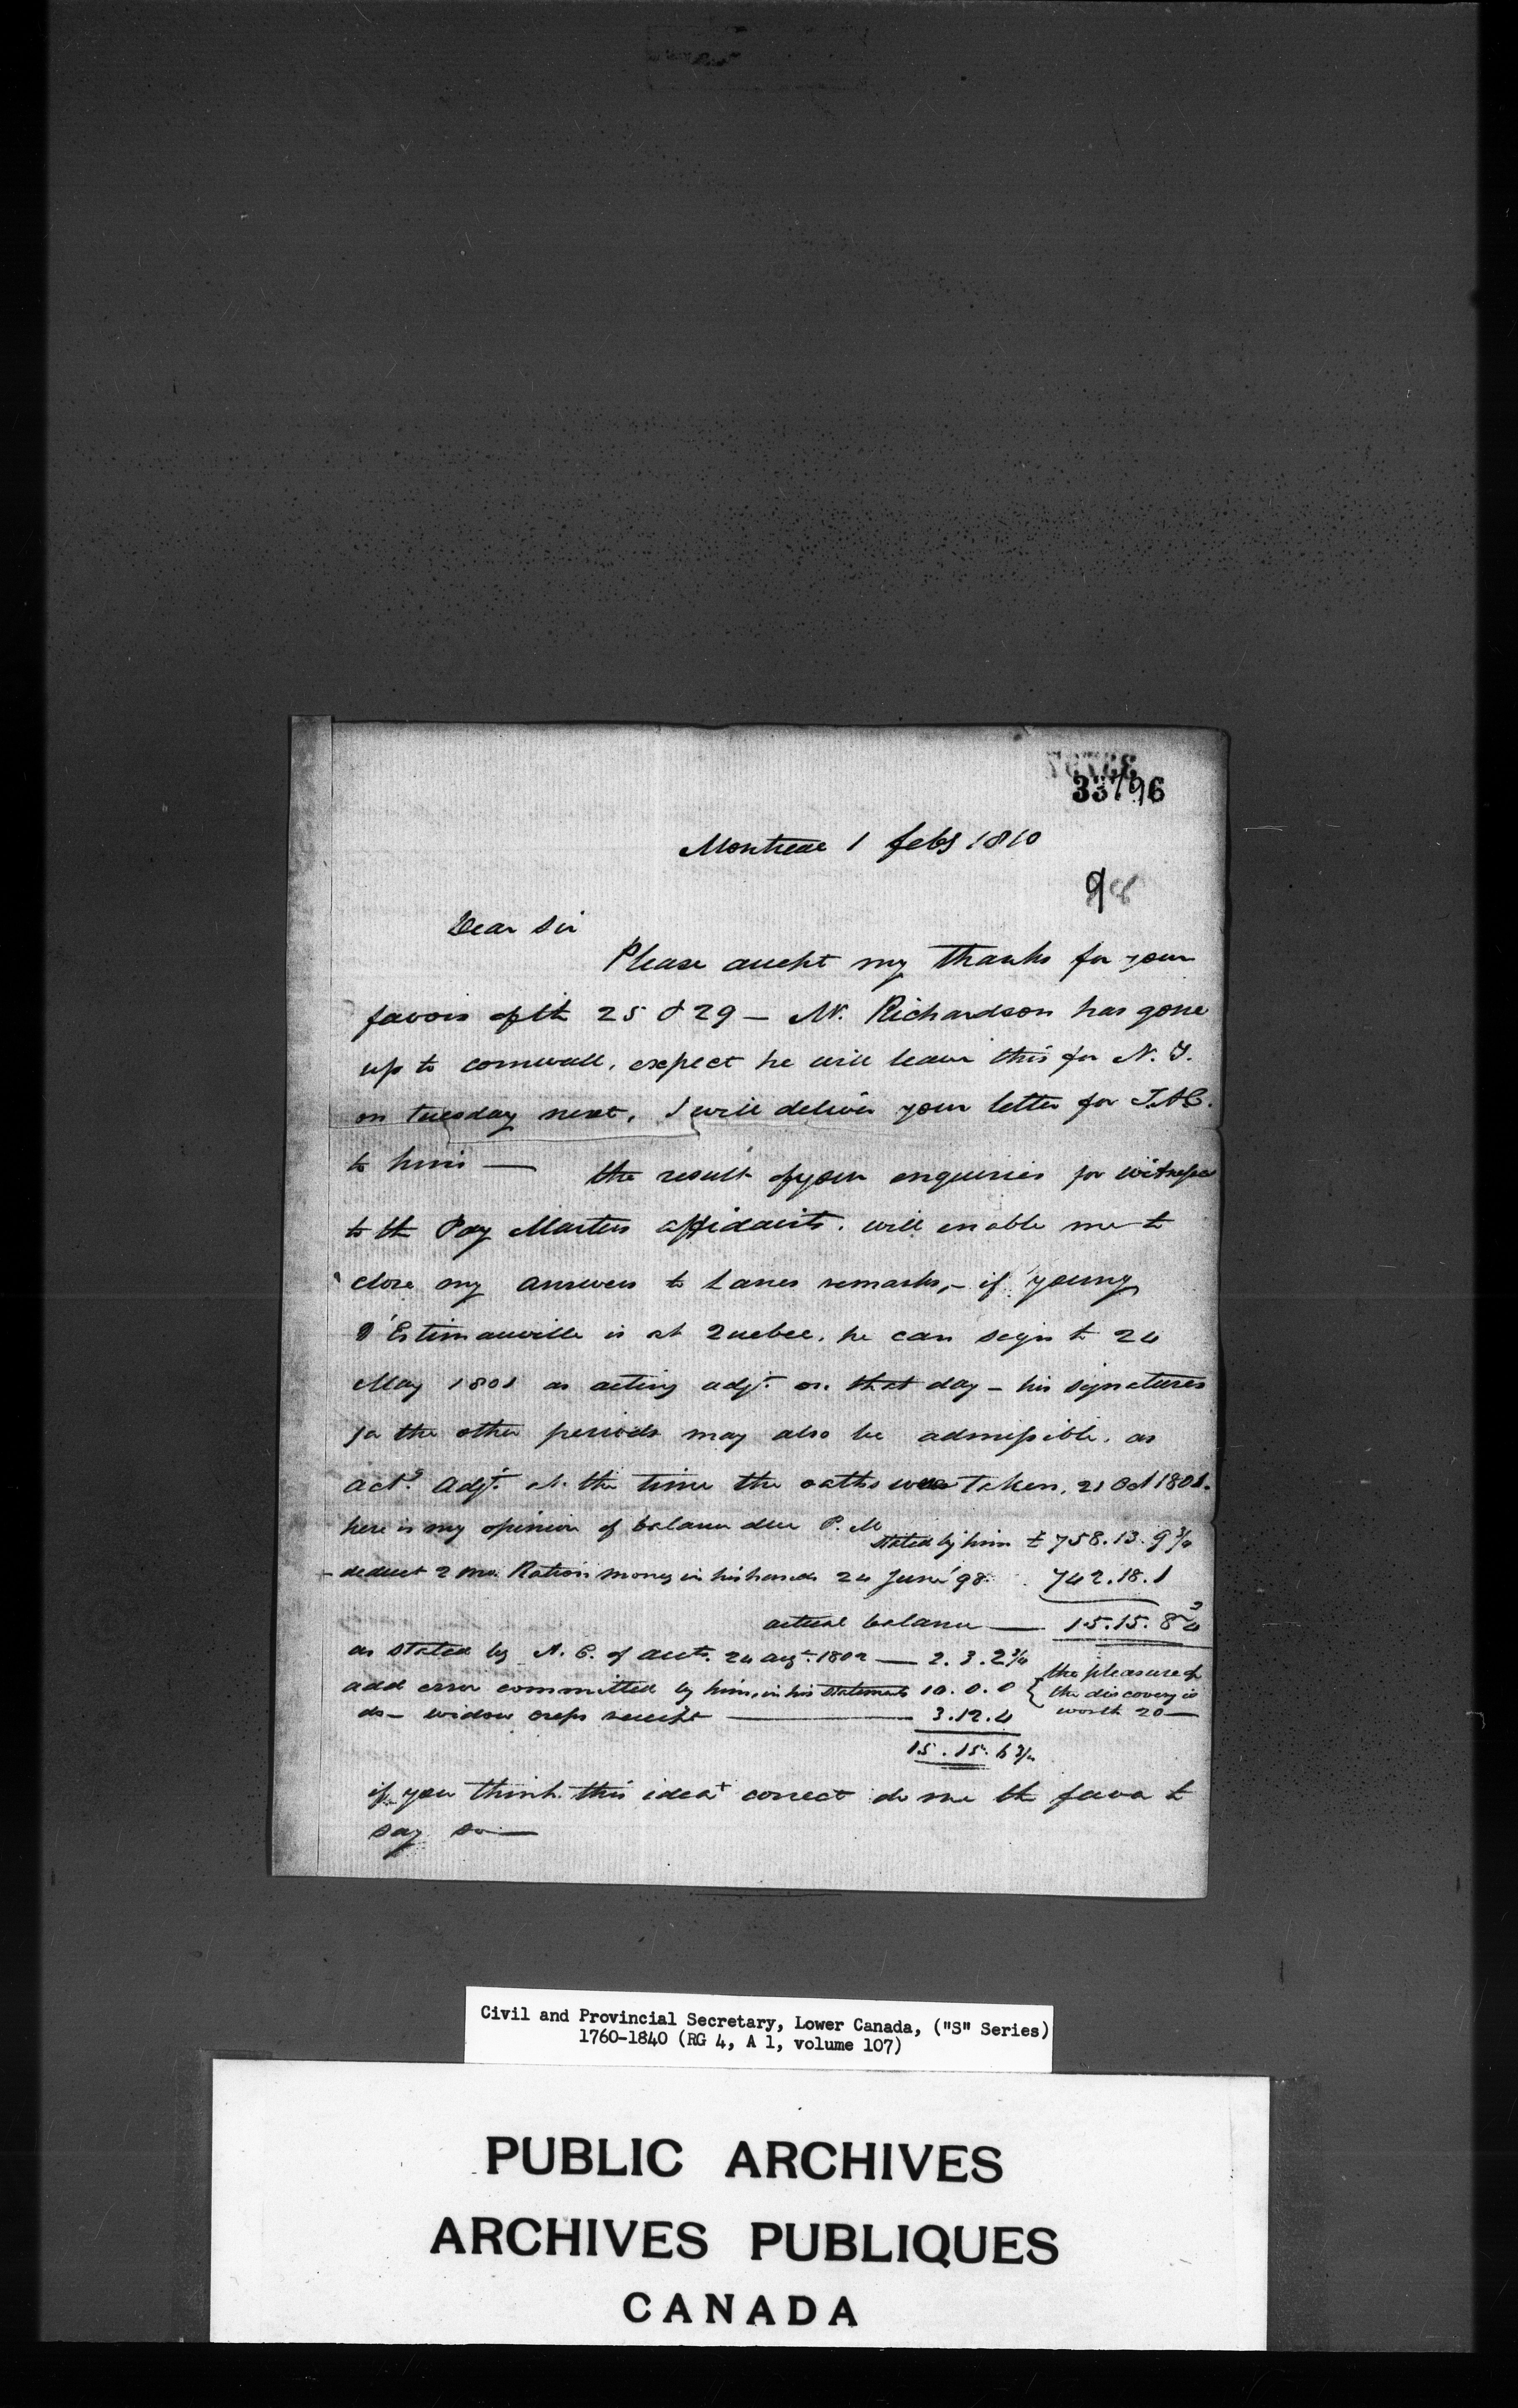 33796
Montreal 1 feby 1810
98
Dear Sir
Please accept my thanks for your
favors of th 25 & 29 – Mr. Richardson has gone
up to cornwall, expect he will leave this for N. Y.
on tuesday next, I will deliver your letter for
to him — the result of your enquiries for witnesses
to th Pay Masters affidavits. will enable me to
close my answers to Lanes remarks, – if young
D'Estimauville is at Quebec. he can sign th 24
May 1801 as acting adjt. on that day – his signatures
for the other periods may also be admissible. as
actg. Adjt. at the time the oaths was taken, 21 Oct 1801.
here is my opinion of balance due P. M
stated by him £ 758.13.9¾
deduct 2 mo. Ration money in his hands 24 June '98. 742.18.1
actual balance — 15.15.8¾
as stated by of accts. 24 augt. 1802 — 2.3.2¾
add error committed by him, in his statements 10.0.0 { the pleasure of
the discovery is
worth 20 —
do – widow receipt — 3.12.4
15.15.6¾
if you think this idea + correct do me th favor to
say so —
Civil and Provincial Secretary, Lower Canada, ("S" Series)
1760-1840 (RG 4, A 1, volume 107)
PUBLIC ARCHIVES
ARCHIVES PUBLIQUES
CANADA